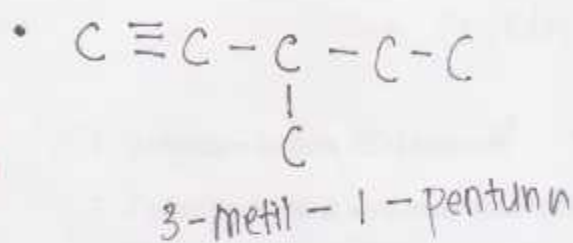 • C ≡ C - C - C - C
|
C
3-metil-1-pentunn